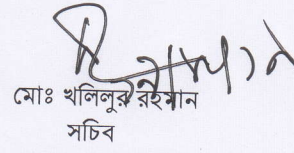 মোঃ খলিলুর রহমান
সচিব